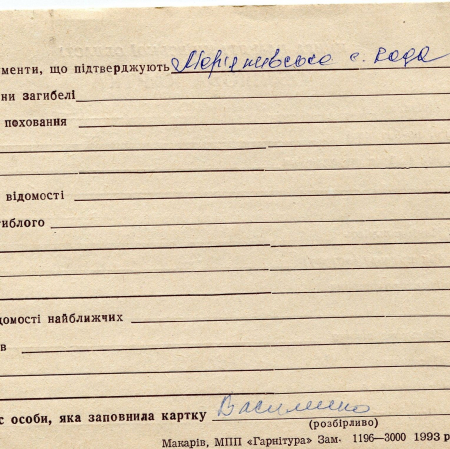 ументи, що підтверджують Мар'янівська с. рада
ни загибелі
поховання
відомості
иблого
домості найближчих
в
с особи, яка заповнила картку Василенко
(розбірливо)
Макарів, МПП «Гарнітура» Зам- 1196—3000 1993 р